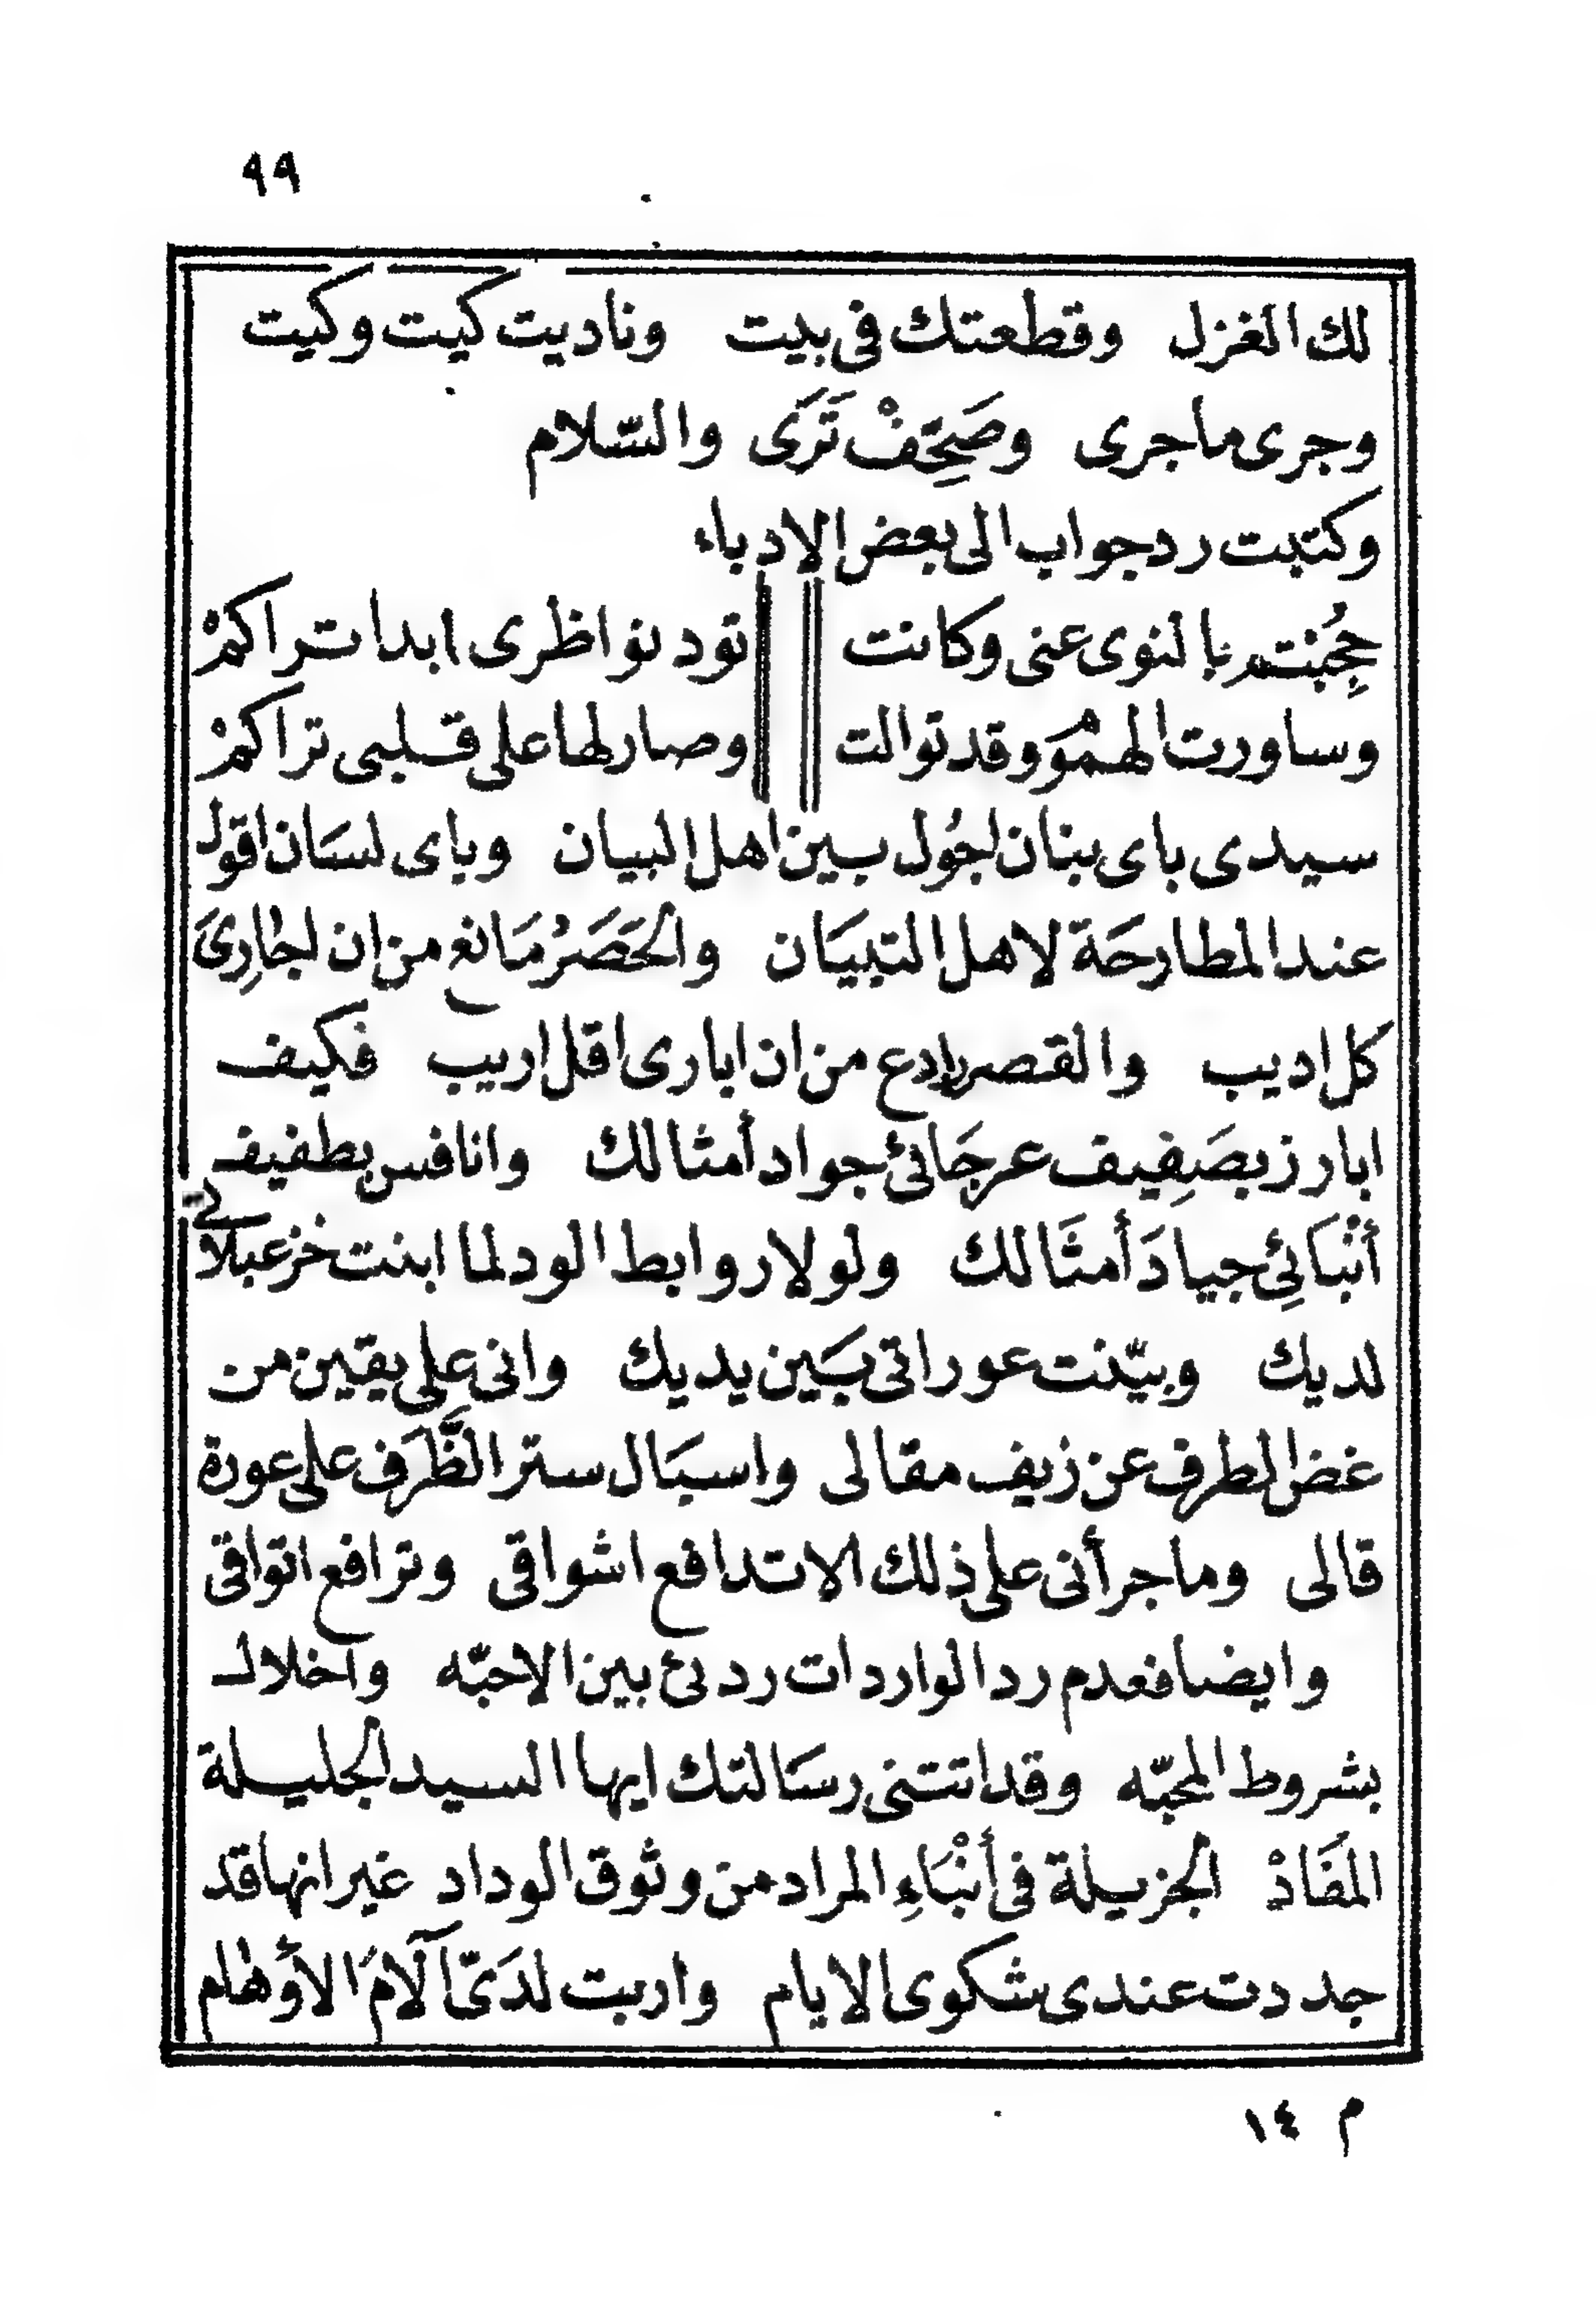 ٩٩
لك الغزل وقطعتك فى بيت وناديت كيت وكيت
وجرى ماجرى وصَحِّفْ تَرَى والسّلام
وكتبت رد جواب الى بعض الادباء
حُجِبْتم بالنوى عنى وكانت تود نواظرى ابدا تراكمْ
وساورت الهمُوْمَ وقد توالت وصار لها على قلبى تراكمْ
سيدى باى بنان اجُول بين اهل البيان وباى لسَان اقول
عند المطارحَة لاهل التبيَان والحَصَرُ مَانع من ان اجارِىَ
كل اديب والقصر رادع من ان ابارى اقل اريب فكيف
ابارز بصَفِيف عرجَائى جواد أمثالك وانافس بطفيف
أنْبَائِى جيادَ أمثَالك ولولا روابط الود لما ابنت خزعبلاتى
لديك وبيّنت عوراتى بَين يديك وانى على يقين من
غض الطرف عن زيف مقالى واسبَال ستر الظَّرف على عورة
قالى وما جرأنى على ذلك الا تدافع اشواقى وترافع اتواقى
وايضا فعدم رد الواردات ردئ بين الاحبّه واخلال
بشروط المحبّه وقد اتتنى رسَالتك ايها السيد الجليلة
المفَادْ الجزيلة فى أنْبَاءِ المراد من وثوق الوداد غير انها قد
جددت عندى شكوى الايام واربت لدَىّ آلَامَ الأوْهَام
م ١٤